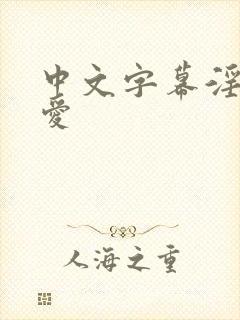 中文字幕淫
愛
人海之重